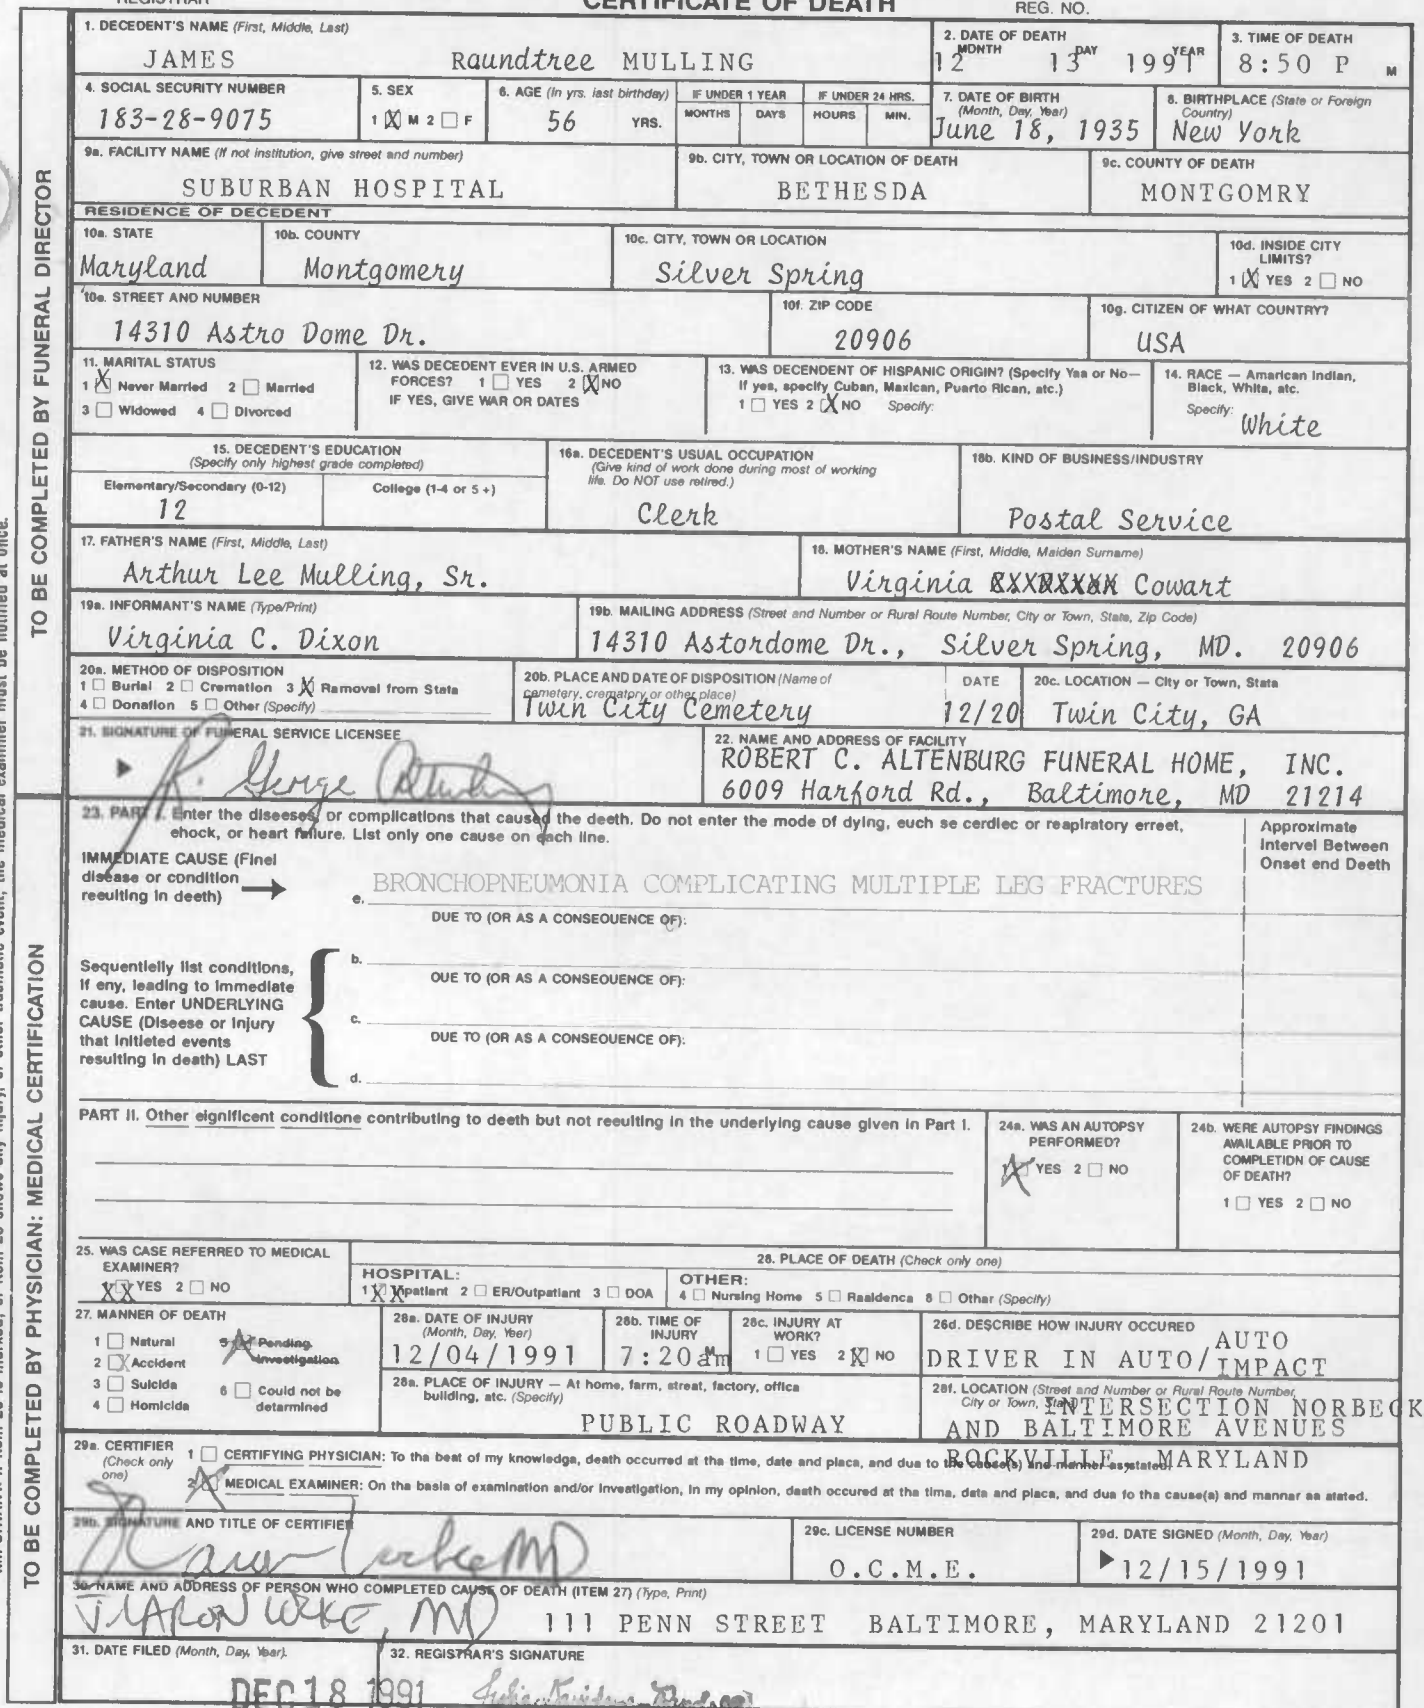 REGISTRAR CERTIFICATE OF DEATH REG. NO.
TO BE COMPLETED BY FUNERAL DIRECTOR
1. DECEDENT'S NAME (First, Middle, Last)
JAMES Raundtree MULLING
2. DATE OF DEATH
MONTH DAY YEAR
12 13 1991
3. TIME OF DEATH
8:50 P M
4. SOCIAL SECURITY NUMBER
183-28-9075
5. SEX
1 X M 2 F
6. AGE (In yrs. last birthday)
56 YRS.
IF UNDER 1 YEAR
MONTHS DAYS
IF UNDER 24 HRS.
HOURS MIN.
7. DATE OF BIRTH
(Month, Day, Year)
June 18, 1935
8. BIRTHPLACE (State or Foreign
Country)
New York
9a. FACILITY NAME (If not institution, give street and number)
SUBURBAN HOSPITAL
9b. CITY, TOWN OR LOCATION OF DEATH
BETHESDA
9c. COUNTY OF DEATH
MONTGOMRY
RESIDENCE OF DECEDENT
10a. STATE
Maryland
10b. COUNTY
Montgomery
10c. CITY, TOWN OR LOCATION
Silver Spring
10d. INSIDE CITY
LIMITS?
1 X YES 2 NO
10e. STREET AND NUMBER
14310 Astro Dome Dr.
10f. ZIP CODE
20906
10g. CITIZEN OF WHAT COUNTRY?
USA
11. MARITAL STATUS
1 X Never Married 2 Married
3 Widowed 4 Divorced
12. WAS DECEDENT EVER IN U.S. ARMED
FORCES? 1 YES 2 X NO
IF YES, GIVE WAR OR DATES
13. WAS DECENDENT OF HISPANIC ORIGIN? (Specify Yes or No—
If yes, specify Cuban, Mexican, Puerto Rican, etc.)
1 YES 2 X NO Specify:
14. RACE — American Indian,
Black, White, etc.
Specify: White
15. DECEDENT'S EDUCATION
(Specify only highest grade completed)
Elementary/Secondary (0-12) College (1-4 or 5 +)
12
16a. DECEDENT'S USUAL OCCUPATION
(Give kind of work done during most of working
life. Do NOT use retired.)
Clerk
16b. KIND OF BUSINESS/INDUSTRY
Postal Service
17. FATHER'S NAME (First, Middle, Last)
Arthur Lee Mulling, Sr.
18. MOTHER'S NAME (First, Middle, Maiden Surname)
Virginia Cowart
19a. INFORMANT'S NAME (Type/Print)
Virginia C. Dixon
19b. MAILING ADDRESS (Street and Number or Rural Route Number, City or Town, State, Zip Code)
14310 Astordome Dr., Silver Spring, MD. 20906
20a. METHOD OF DISPOSITION
1 Burial 2 Cremation 3 X Removal from State
4 Donation 5 Other (Specify)
20b. PLACE AND DATE OF DISPOSITION (Name of
cemetery, crematory or other place)
Twin City Cemetery
DATE
12/20
20c. LOCATION — City or Town, State
Twin City, GA
21. SIGNATURE OF FUNERAL SERVICE LICENSEE
R. George Altenburg
22. NAME AND ADDRESS OF FACILITY
ROBERT C. ALTENBURG FUNERAL HOME, INC.
6009 Harford Rd., Baltimore, MD 21214
TO BE COMPLETED BY PHYSICIAN: MEDICAL CERTIFICATION
23. PART I. Enter the diseases, or complications that caused the death. Do not enter the mode of dying, such as cardiac or respiratory arrest,
shock, or heart failure. List only one cause on each line.
Approximate
Interval Between
Onset and Death
IMMEDIATE CAUSE (Final
disease or condition
resulting in death)
a. BRONCHOPNEUMONIA COMPLICATING MULTIPLE LEG FRACTURES
DUE TO (OR AS A CONSEQUENCE OF):
Sequentially list conditions,
if any, leading to immediate
cause. Enter UNDERLYING
CAUSE (Disease or Injury
that initiated events
resulting in death) LAST
b.
DUE TO (OR AS A CONSEQUENCE OF):
c.
DUE TO (OR AS A CONSEQUENCE OF):
d.
PART II. Other significant conditions contributing to death but not resulting in the underlying cause given in Part I.
24a. WAS AN AUTOPSY
PERFORMED?
1 X YES 2 NO
24b. WERE AUTOPSY FINDINGS
AVAILABLE PRIOR TO
COMPLETION OF CAUSE
OF DEATH?
1 YES 2 NO
25. WAS CASE REFERRED TO MEDICAL
EXAMINER?
XX YES 2 NO
26. PLACE OF DEATH (Check only one)
HOSPITAL:
1 X Inpatient 2 ER/Outpatient 3 DOA
OTHER:
4 Nursing Home 5 Residence 6 Other (Specify)
27. MANNER OF DEATH
1 Natural 5 Pending
2 X Accident Investigation
3 Suicide 6 Could not be
4 Homicide determined
28a. DATE OF INJURY
(Month, Day, Year)
12/04/1991
28b. TIME OF
INJURY
7:20am
28c. INJURY AT
WORK?
1 YES 2 X NO
28d. DESCRIBE HOW INJURY OCCURED
DRIVER IN AUTO/AUTO
IMPACT
28e. PLACE OF INJURY — At home, farm, street, factory, office
building, etc. (Specify)
PUBLIC ROADWAY
28f. LOCATION (Street and Number or Rural Route Number,
City or Town, State)
INTERSECTION NORBECK
AND BALTIMORE AVENUES
ROCKVILLE, MARYLAND
29a. CERTIFIER
(Check only
one)
1 CERTIFYING PHYSICIAN: To the best of my knowledge, death occurred at the time, date and place, and due to the cause(s) and manner as stated.
2 X MEDICAL EXAMINER: On the basis of examination and/or investigation, in my opinion, death occured at the time, date and place, and due to the cause(s) and manner as stated.
29b. SIGNATURE AND TITLE OF CERTIFIER
MD
29c. LICENSE NUMBER
O.C.M.E.
29d. DATE SIGNED (Month, Day, Year)
12/15/1991
30. NAME AND ADDRESS OF PERSON WHO COMPLETED CAUSE OF DEATH (ITEM 27) (Type, Print)
J. LARON LOCKE, MD 111 PENN STREET BALTIMORE, MARYLAND 21201
31. DATE FILED (Month, Day, Year).
DEC 18 1991
32. REGISTRAR'S SIGNATURE